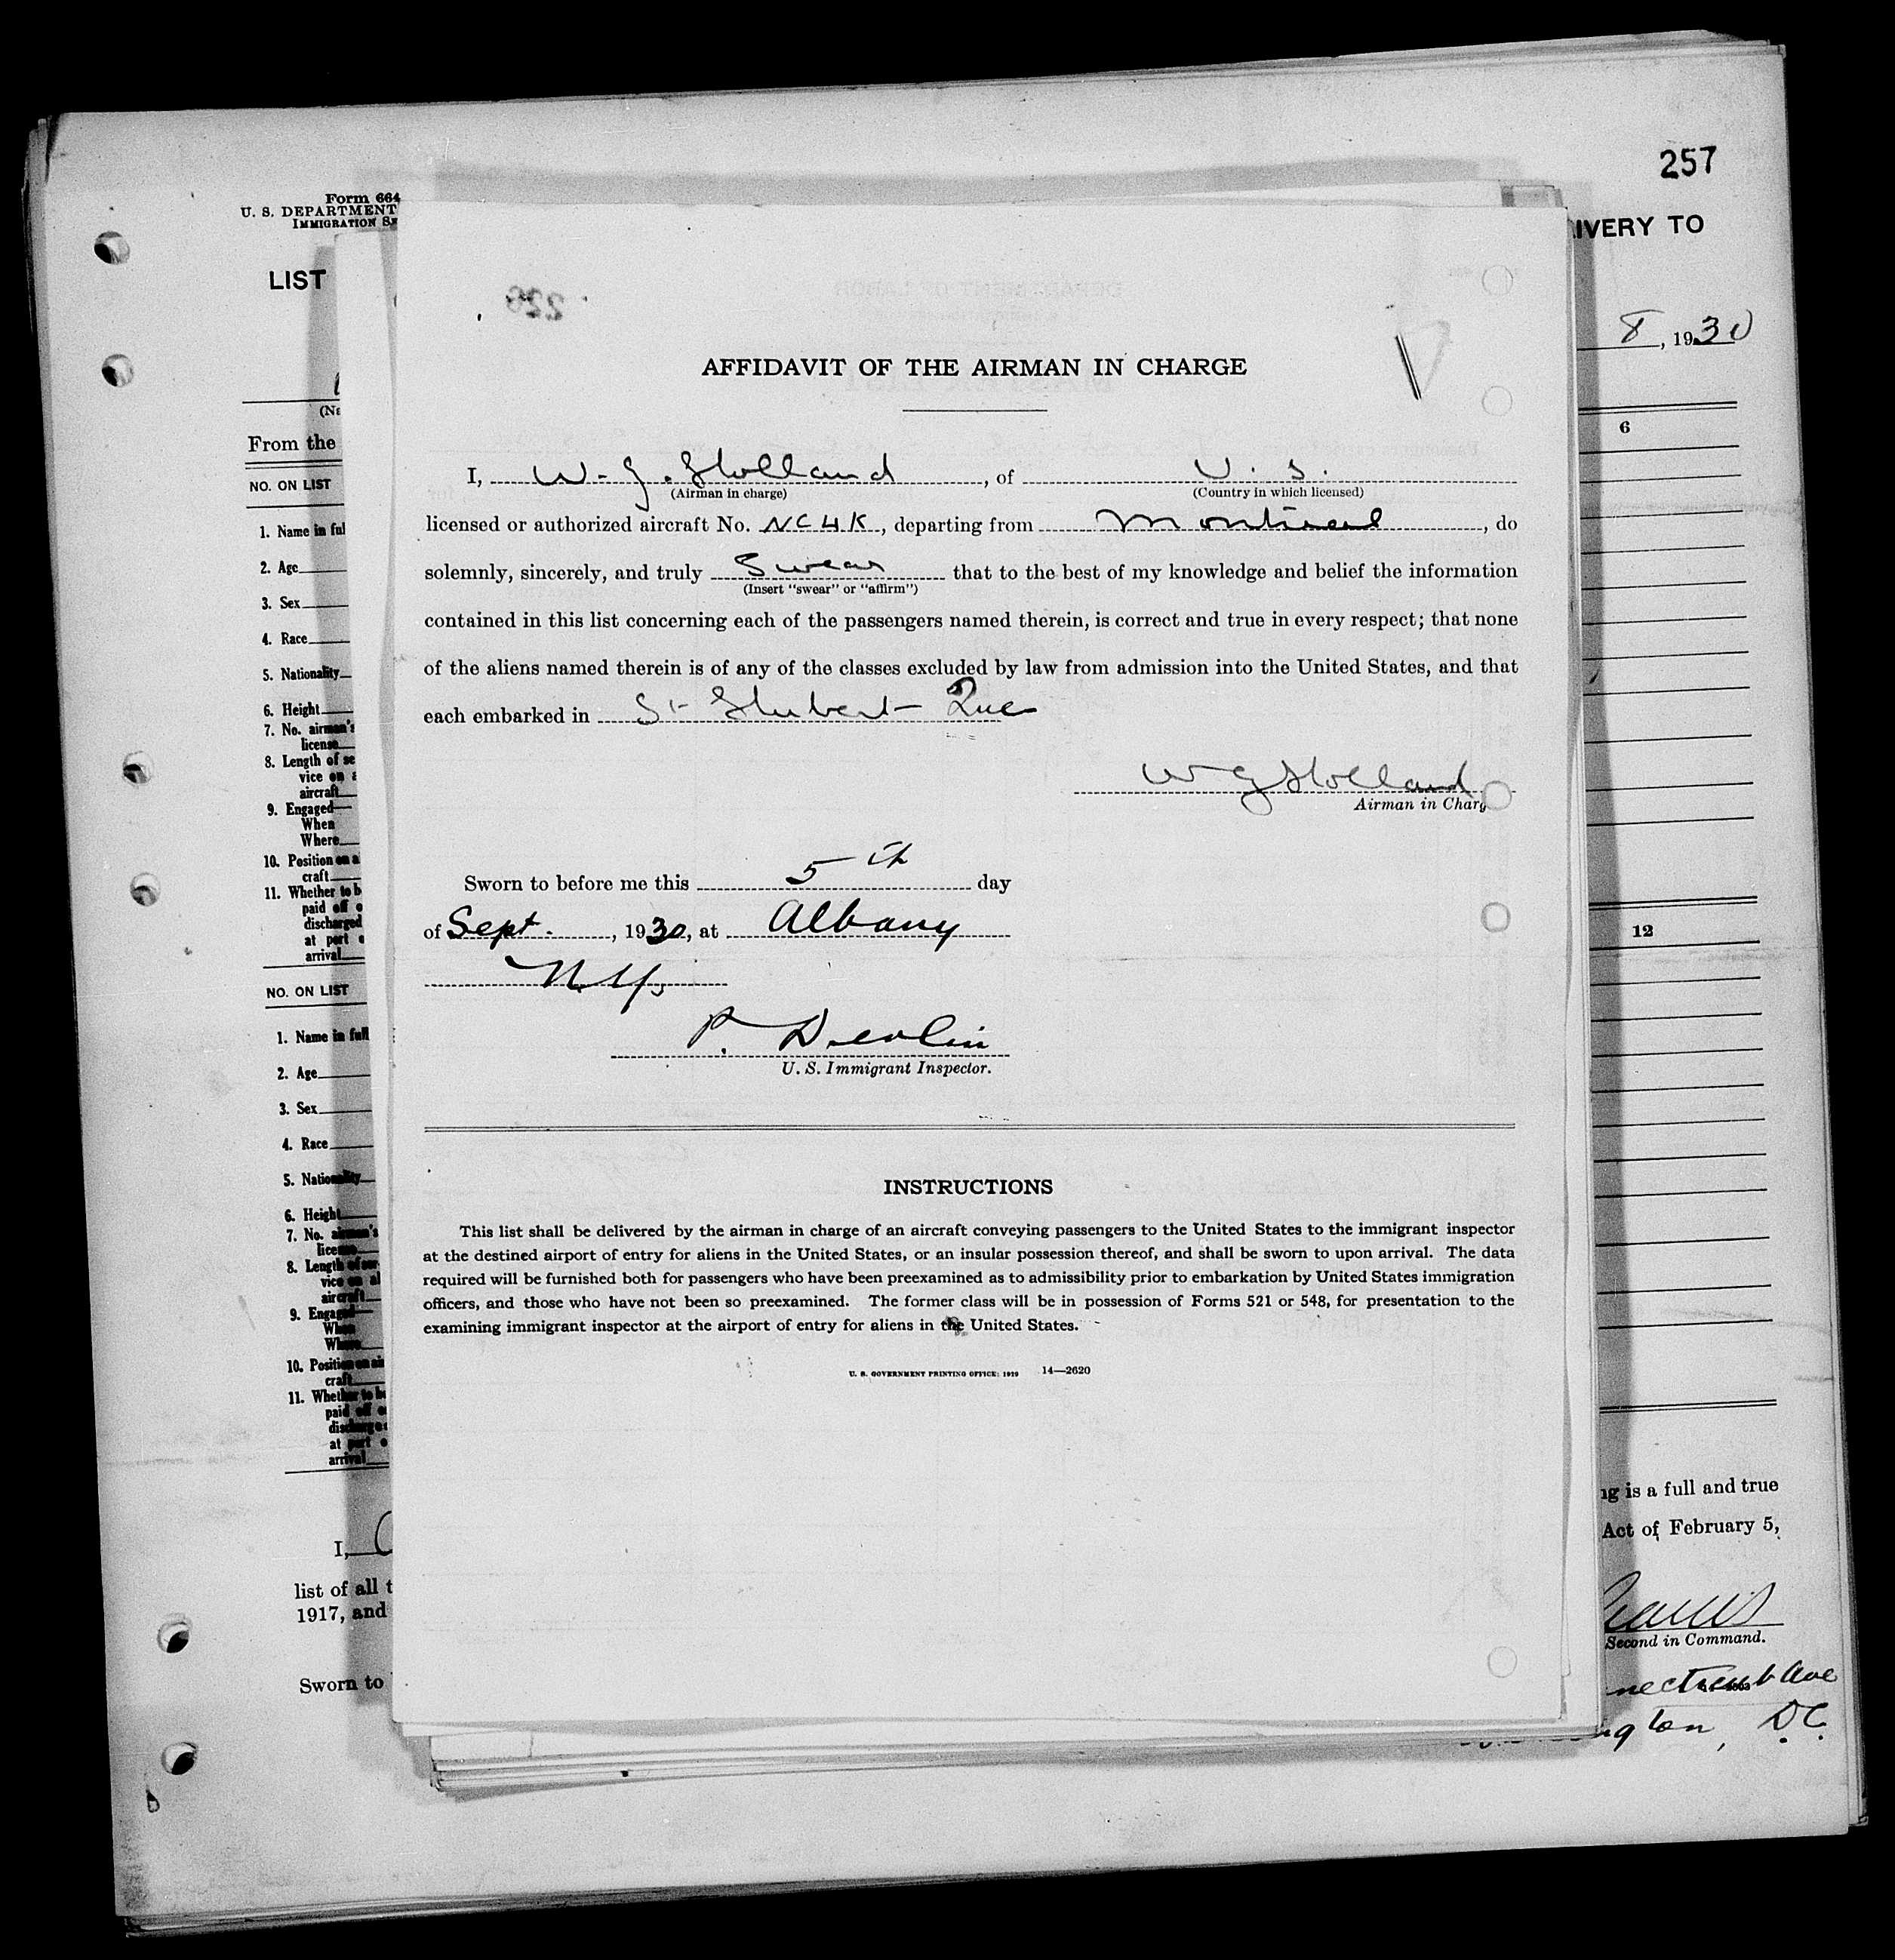 257
Form 664
U. S. DEPARTMENT
IMMIGRATION
LIST
IVERY TO
8, 1930
From the
6
NO. ON LIST
1. Name in ful
2. Age
3. Sex
4. Race
5. Nationality
6. Height
7. No. airman's
license
8. Length of se
vice on a
aircraft
9. Engaged
When
Where
10. Position on a
craft
11. Whether to b
paid off o
discharged
at port o
arrival
12
NO. ON LIST
1. Name in full
2. Age
3. Sex
4. Race
5. Nationality
6. Height
7. No. airman's
license
8. Length of ser
vice on ai
aircraft
9. Engaged
When
Where
10. Position on air
craft
11. Whether to be
paid off o
discharged
at port o
arrival
ng is a full and true
I,
Act of February 5,
list of all t
1917, and
Second in Command.
Sworn to
necticut Ave
ngton, D.C.
226
AFFIDAVIT OF THE AIRMAN IN CHARGE
I, W. G. Holland, of U. S.
(Airman in charge) (Country in which licensed)
licensed or authorized aircraft No. NC4K, departing from Montreal, do
solemnly, sincerely, and truly Swear that to the best of my knowledge and belief the information
(Insert "swear" or "affirm")
contained in this list concerning each of the passengers named therein, is correct and true in every respect; that none
of the aliens named therein is of any of the classes excluded by law from admission into the United States, and that
each embarked in St Hubert Que
W G Holland
Airman in Charg
Sworn to before me this 5th day
of Sept. , 1930, at Albany
N.Y.
P. Devlin
U. S. Immigrant Inspector.
INSTRUCTIONS
This list shall be delivered by the airman in charge of an aircraft conveying passengers to the United States to the immigrant inspector
at the destined airport of entry for aliens in the United States, or an insular possession thereof, and shall be sworn to upon arrival. The data
required will be furnished both for passengers who have been preexamined as to admissibility prior to embarkation by United States immigration
officers, and those who have not been so preexamined. The former class will be in possession of Forms 521 or 548, for presentation to the
examining immigrant inspector at the airport of entry for aliens in the United States.
U. S. GOVERNMENT PRINTING OFFICE: 1929 14—2620